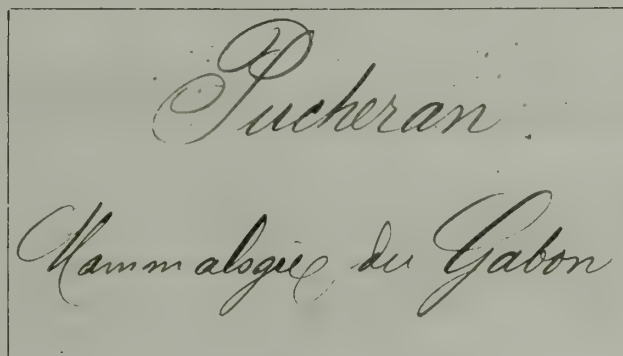 Pucheran.
Mammalogie, du Gabon